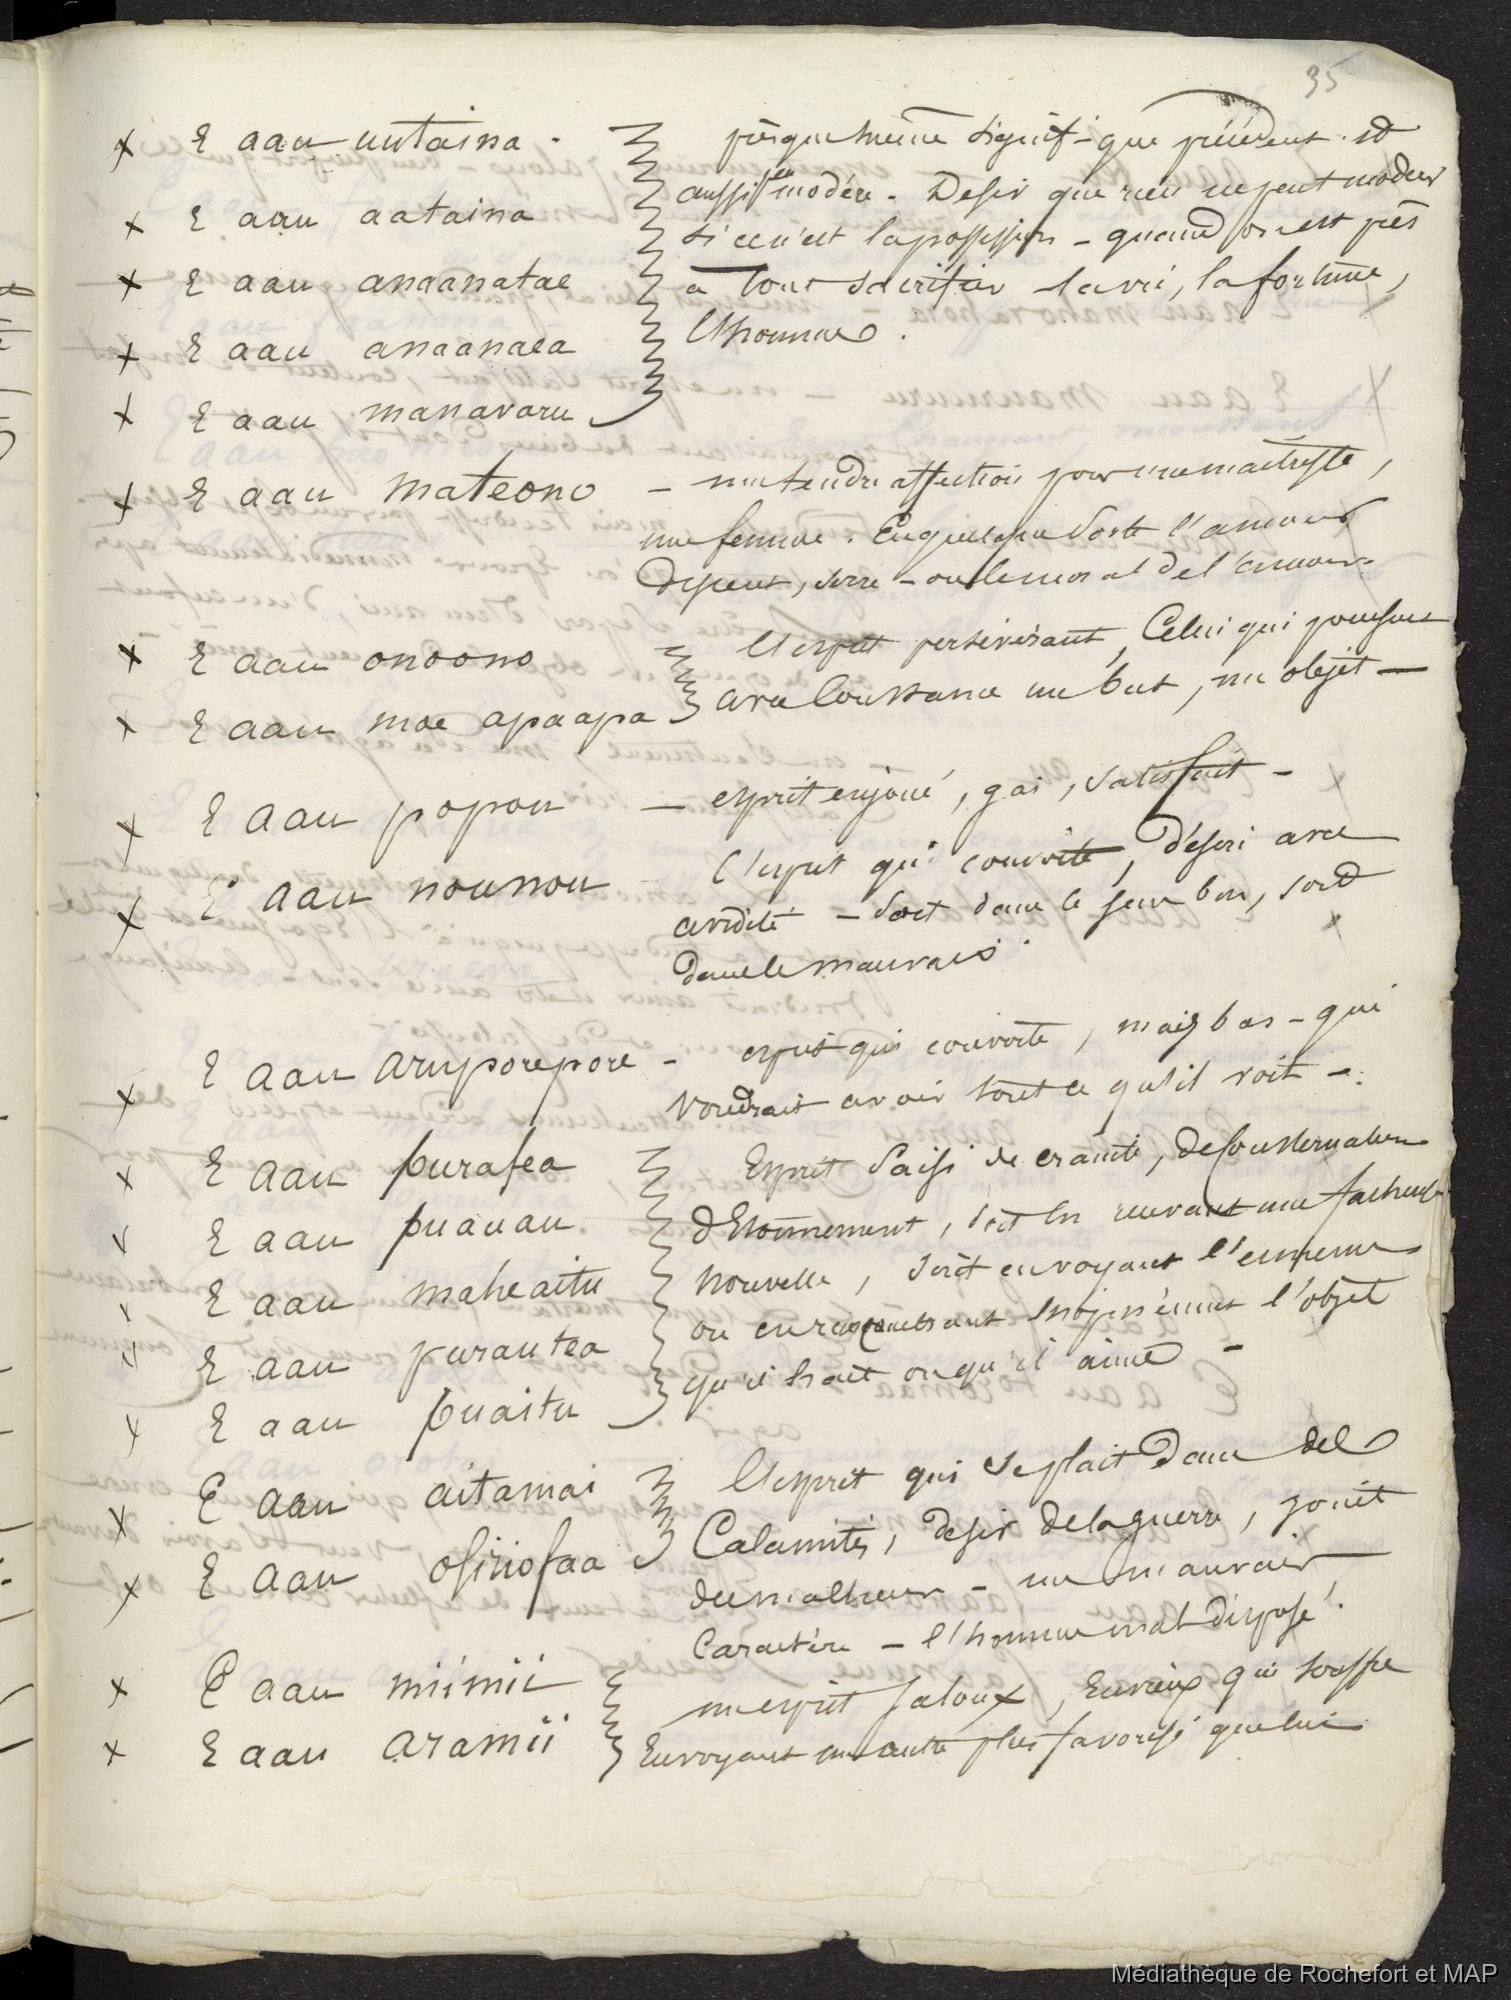 35
x E aau uutaina.
x E aau aataina
x E aau anaanatae
x E aau anaanaea
x E aau manavaru
presque meme signif - que précédent. id
aussi modéré - Desir que rien ne peut moderer
si ce n'est la possession - quand on est près
à tout sacrifier la vie, la fortune,
l'honneur.
x E aau mateono - une tendre affection pour une maitresse,
une femme. En quelque sorte l'amour
- ou le moral de l'amour -
x E aau onoono
x E aau moe apaapa
l'esprit persévérant, Celui qui poursuit
avec Constance un but, un objet -
x E aau popou - esprit enjoué, gai, satisfait -
x E aau nounou - l'esprit qui convoite, désire avec
avidité - soit dans le sens bon, soit
dans le mauvais.
x E aau aruporepore - esprit qui convoite, mais bas - qui
voudrait avoir tout ce qu'il voit -.
x E aau purafea
v E aau puauau
v E aau maheaitu
v E aau purautea
x E aau puaitu
Esprit Saisi de crainte, de Consternation
d'Etonnement, soit en recevant une facheuse
nouvelle, soit en voyant l'ennemi
ou en rencontrant inopinément l'objet
qu'il hait ou qu'il aime -
x E aau aitamai
x E aau ofiriofaa
l'esprit qui se plait dans des
Calamités, desir de la guerre, jouit
du malheur - un mauvais
Caractère - l'homme mal disposé.
x E aau miimii
x E aau aramii
un esprit Jaloux, Envieux qui souffre
En voyant un autre plus favorisé que lui
Médiathèque de Rochefort et MAP